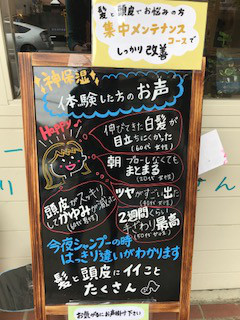 髪と頭皮でお悩みの方
集中メンテナンス
コースで
しっかり改善
神保湿
体験した方のお声
Happy♪
伸びてきた白髪が
目立ちにくかった
(60代女性)
朝ブローしなくても
まとまる
(20代女性)
頭皮がスッキリ
してかゆみが減った
ツヤがすごい出た
2週間くらい
手ざわり最高
今夜シャンプーの時
はっきり違いがわかります
髪と頭皮にイイこと
たくさん♪
お気がるにお声掛け下さい